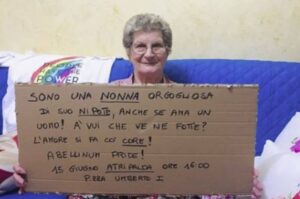 POWER
SONO UNA NONNA ORGOGLIOSA
DI SUO NIPOTE, ANCHE SE AMA UN
UOMO! A VUI CHE VE NE FOTTE?
L'AMORE SI FA CO' CORE!
ABELLINUM PRIDE!
15 GIUGNO ATRIPALDA ORE 16:00
P.ZZA UMBERTO I